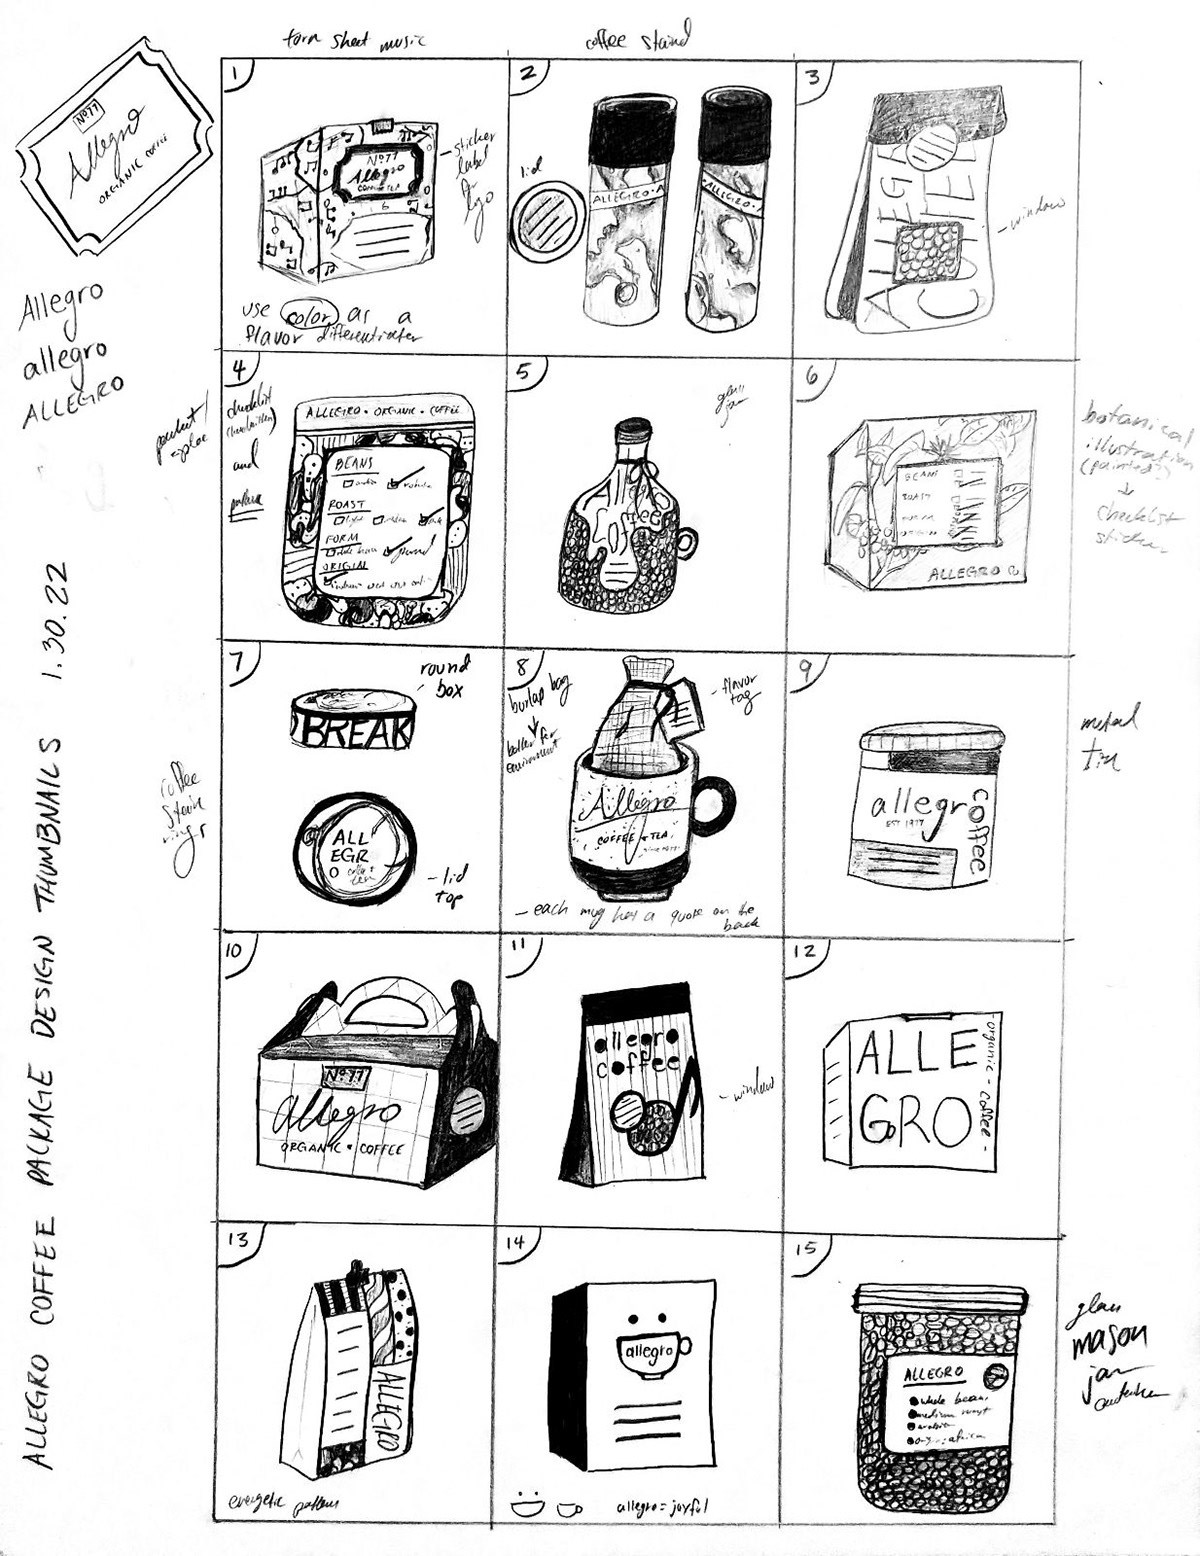 torn sheet music
coffee stained
Nº77
Allegro
ORGANIC COFFEE
Allegro
allegro
ALLEGRO
ALLEGRO COFFEE PACKAGE DESIGN THUMBNAILS 1.30.22
1
Nº77
Allegro
COFFEE & TEA
sticker
label
for
logo
use color as a
flavor differentiater
2
lid
ALLEGRO • A
ALLEGRO •
3
ALLEGRO
COFFEE
- window
4
checklist
(handwritten)
and
pattern
ALLEGRO • ORGANIC • COFFEE
BEANS
robusta
ROAST
light
medium
dark
FORM
whole bean
ground
ORIGIN
5
glass
jar
6
BEANS
ROAST
FORM
ORIGIN
ALLEGRO
botanical
illustration
(painted?)
checklist
sticker
7
round
box
BREAK
ALL
EGR
O
coffee +
tea
- lid
top
coffee
stain
rings
8
burlap bag
better for
environment
- flavor
tag
Allegro
COFFEE & TEA
since 1977
- each mug has a quote on the
back
9
allegro
coffee
EST 1977
metal
tin
10
Nº77
allegro
ORGANIC • COFFEE
11
allegro
coffee
- window
12
ALLE
GRO
organic - coffee -
13
ALLEGRO
energetic pattern
14
allegro
allegro = joyful
15
ALLEGRO
whole bean
medium roast
arabica
origin: africa
glass
mason
jar